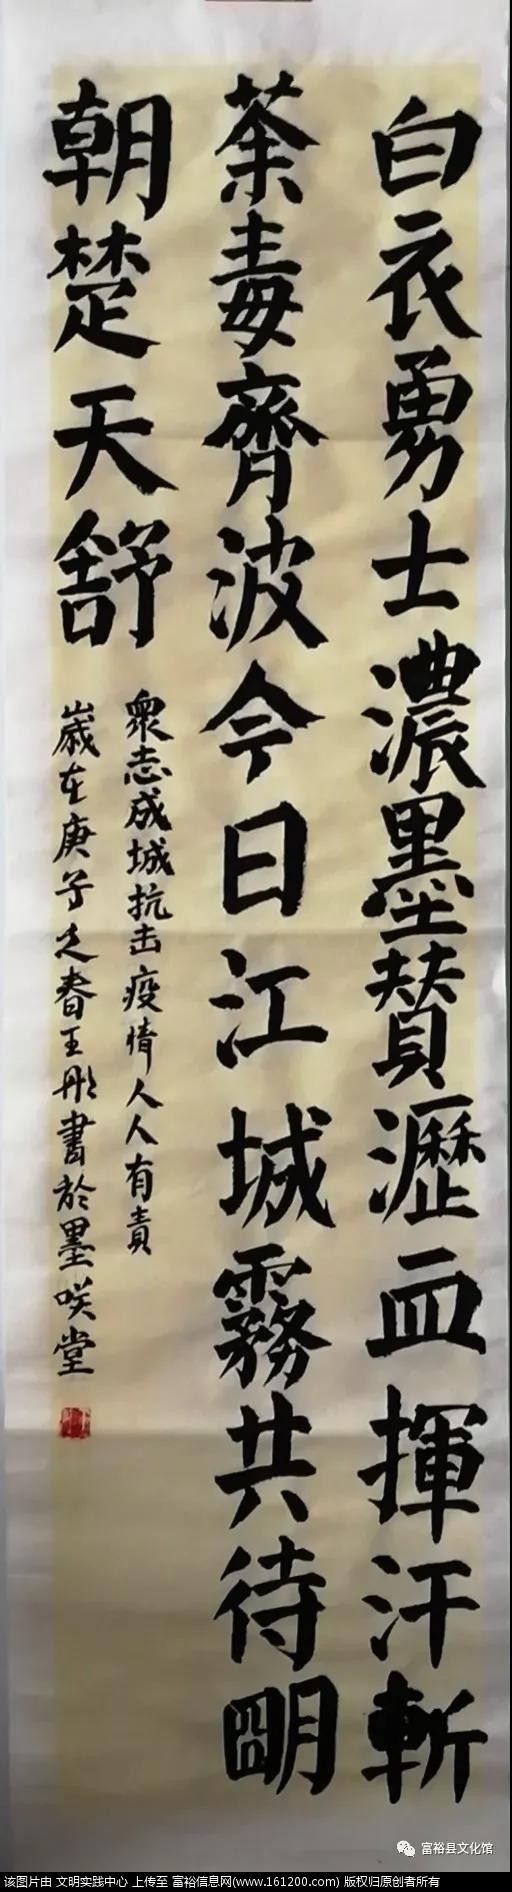 白衣勇士濃墨賛瀝血揮汗斬
荼毒齊波今日江城霧共待明
朝楚天舒
衆志成城抗击疫情人人有責
歲在庚子之春王彤書於墨咲堂
富裕县文化馆
该图片由 文明实践中心 上传至 富裕信息网(www.161200.com) 版权归原创者所有